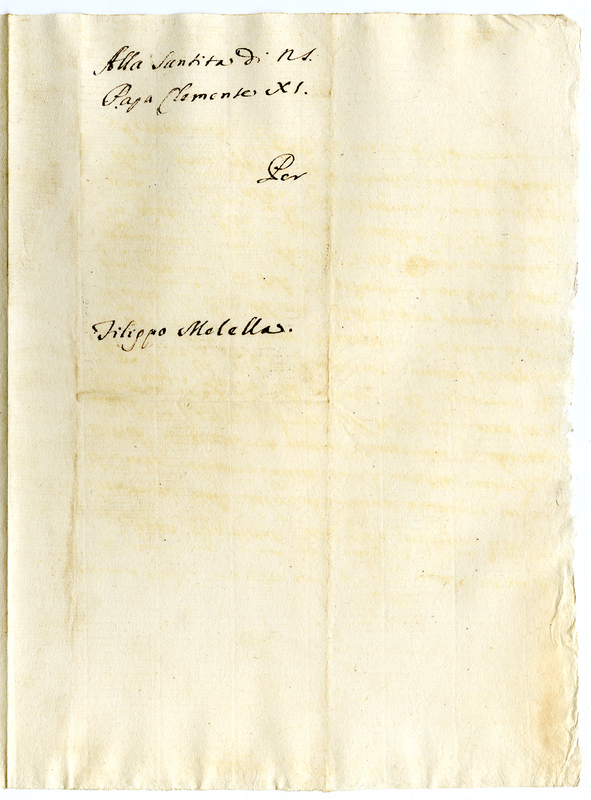 Alla Santita di NS.
Papa Clemente XI.
Per
Filippo Melella.